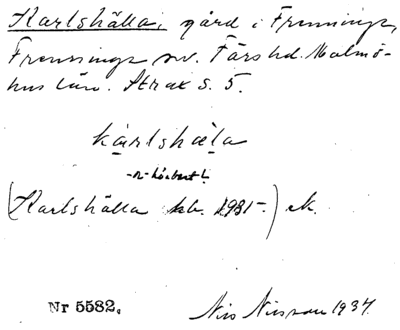 Karlshälla, gård i Frenninge,
Frenninge sn. Färs hd. Malmö-
hus län. Strax S. 5.
karlshäla
-r- hörbart
(Karlshälla kb. 1931-) ek.
Nr 5582.
Nils Nilsson 1937.